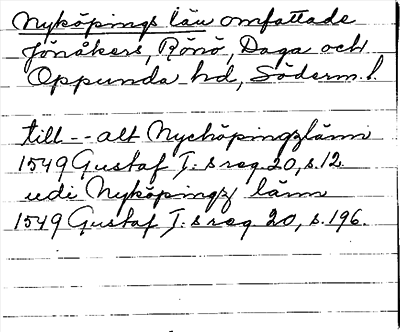 Nyköpings län omfattade
Jönåkers, Rönö, Daga och
Oppunda hd, Söderm. l.
till -- alt Nychöpingzlänn
1549 Gustaf I:s reg. 20, s. 12.
udi Nyköpingz länn
1549 Gustaf I:s reg. 20, s. 196.